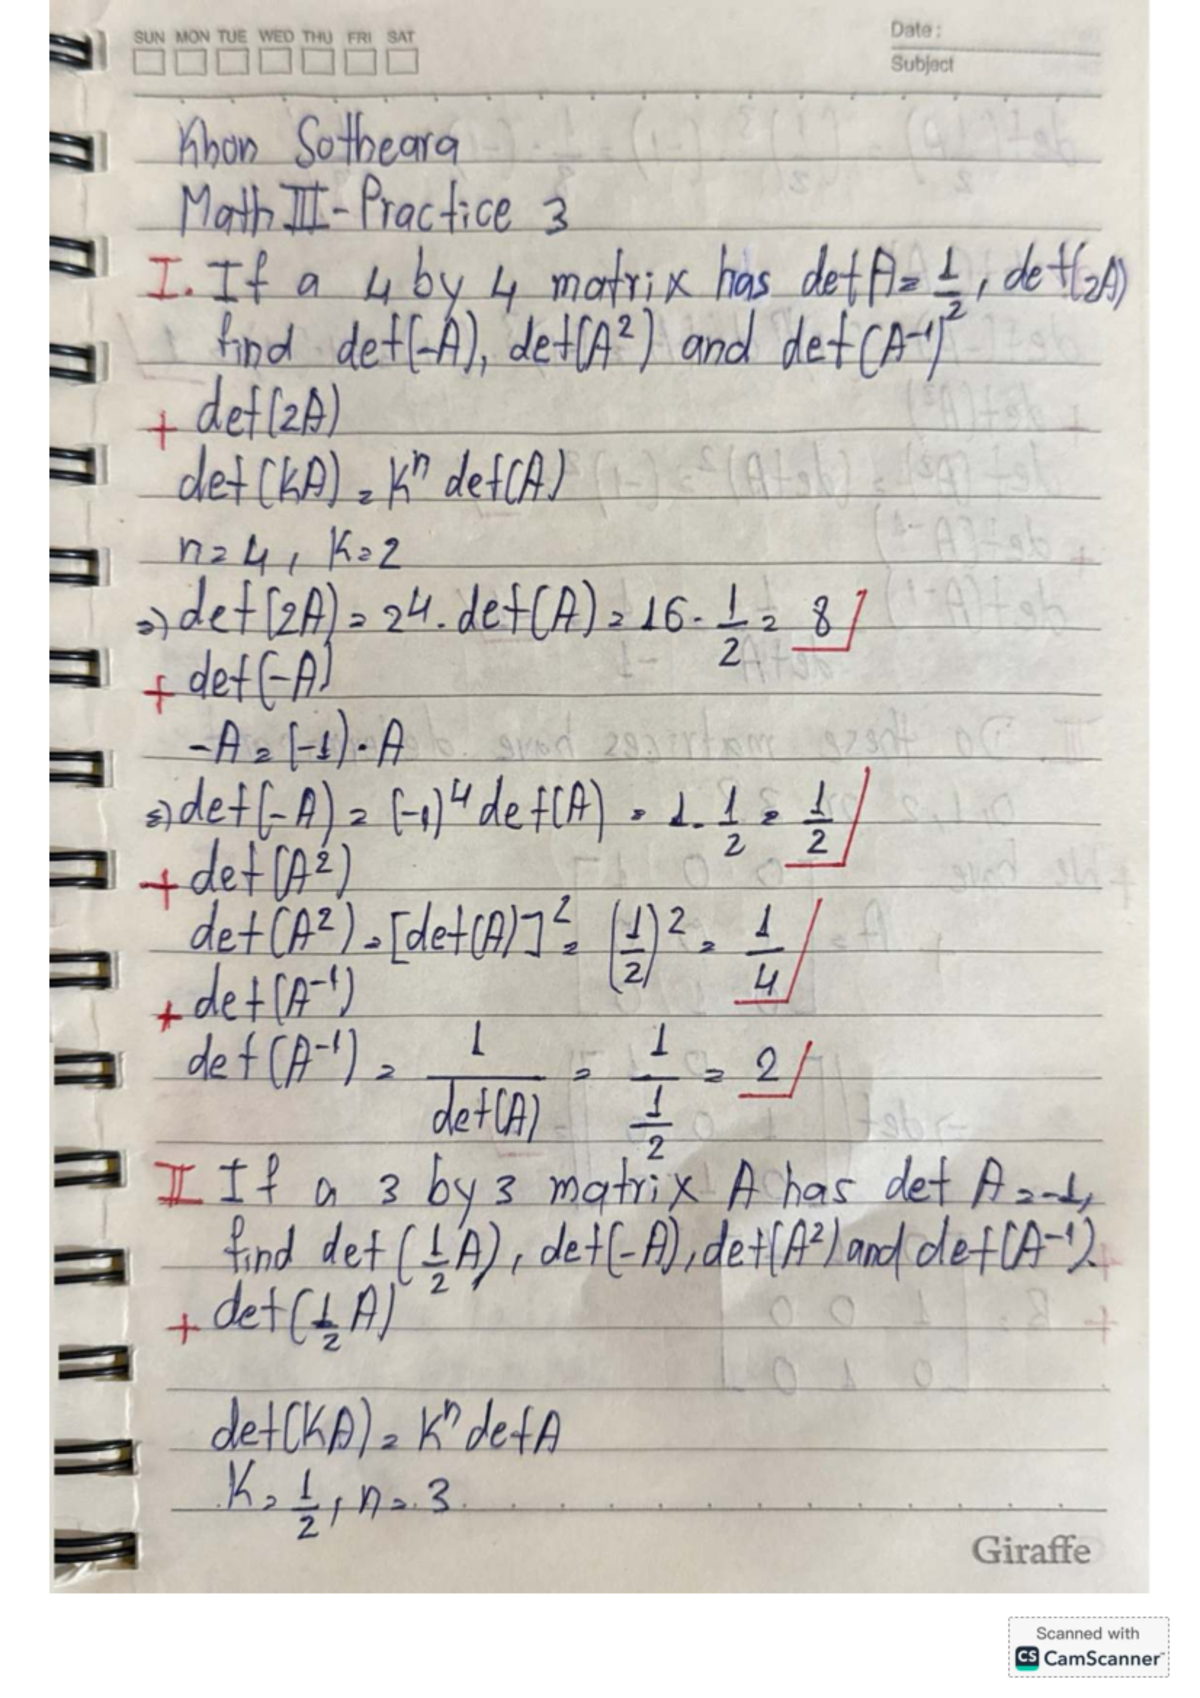 SUN MON TUE WED THU FRI SAT
Date:
Subject
Khon Sotheara
Math III - Practice 3
I. If a 4 by 4 matrix has det A = 1/2, det(2A)
find det(-A), det(A²) and det(A⁻¹)
+ det(2A)
det(kA) = kⁿ det(A)
n = 4, k = 2
=> det(2A) = 24. det(A) = 16 . 1/2 = 8
+ det(-A)
-A = (-1) . A
=> det(-A) = (-1)⁴ det(A) = 1 . 1/2 = 1/2
+ det(A²)
det(A²) = [det(A)]² = (1/2)² = 1/4
+ det(A⁻¹)
det(A⁻¹) = 1/det(A) = 1/(1/2) = 2
II If a 3 by 3 matrix A has det A = -1,
find det(1/2 A), det(-A), det(A²) and det(A⁻¹).
+ det(1/2 A)
det(kA) = kⁿ det A
k = 1/2, n = 3
Giraffe
Scanned with
CS CamScanner